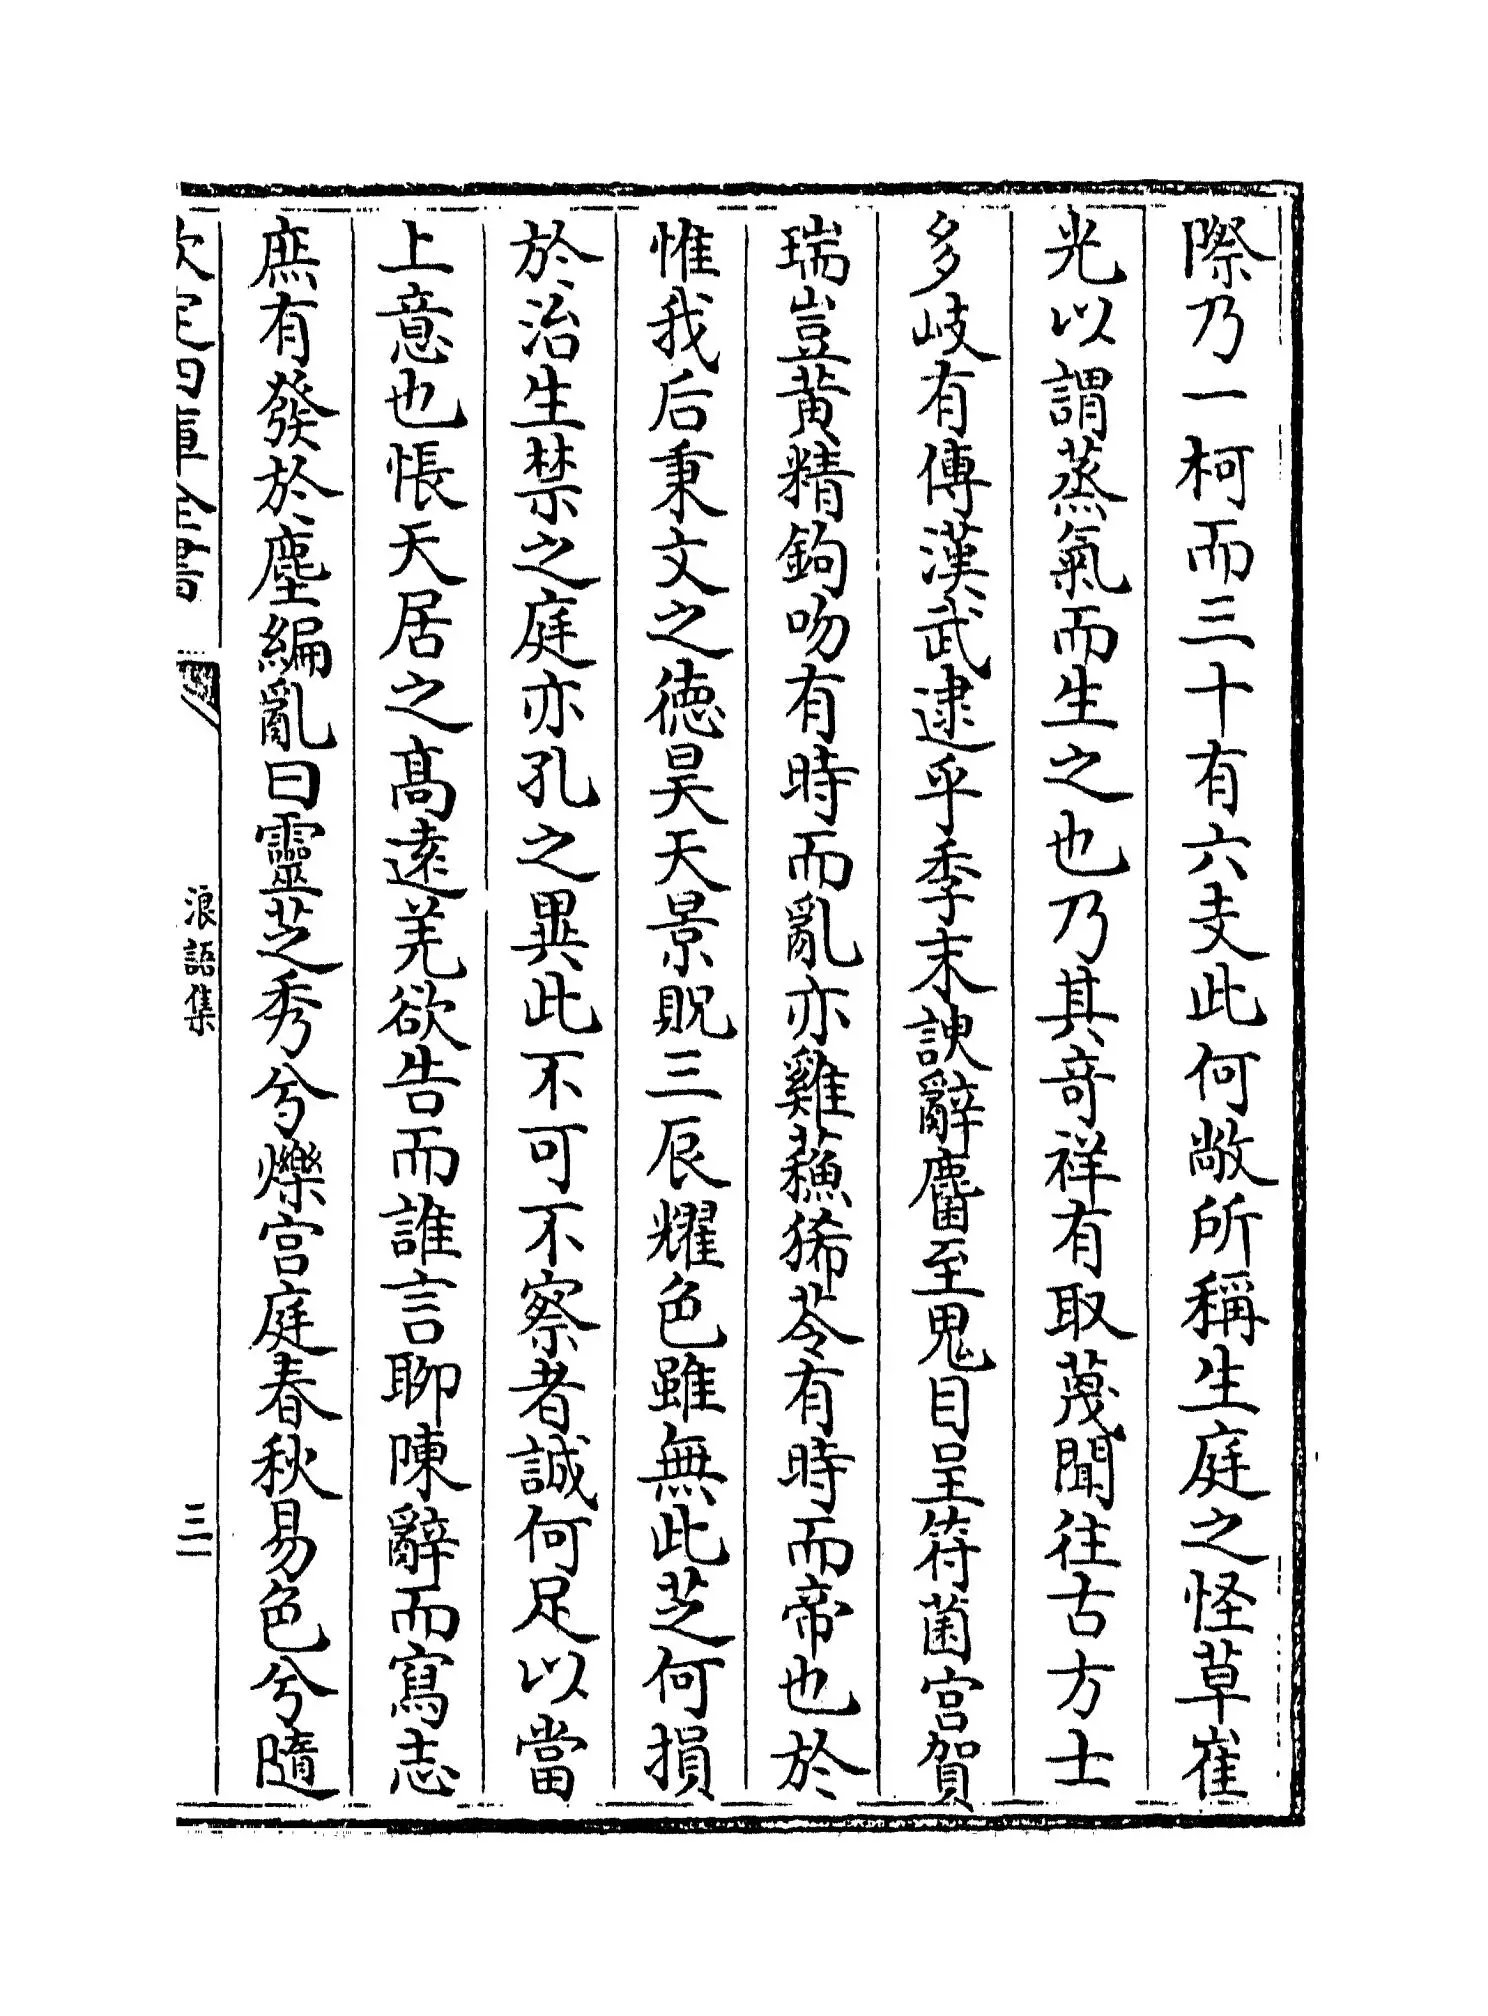 際乃一柯而三十有六支此何敞所稱生庭之怪草崔
光以謂蒸氣而生之也乃其奇祥有取蔑聞往古方士
多岐有傳漢武逮乎季末諛辭麕至鬼目呈符菌宫賀
瑞豈黄精鉤吻有時而亂亦雞蘓豨苓有時而帝也於
惟我后秉文之德昊天景貺三辰耀色雖無此芝何損
於治生禁之庭亦孔之異此不可不察者誠何足以當
上意也悵天居之髙逺羌欲告而誰言聊陳辭而寫志
庶有發於塵編亂曰靈芝秀兮爍宫庭春秋易色兮隨
欽定四庫全書
浪語集
三